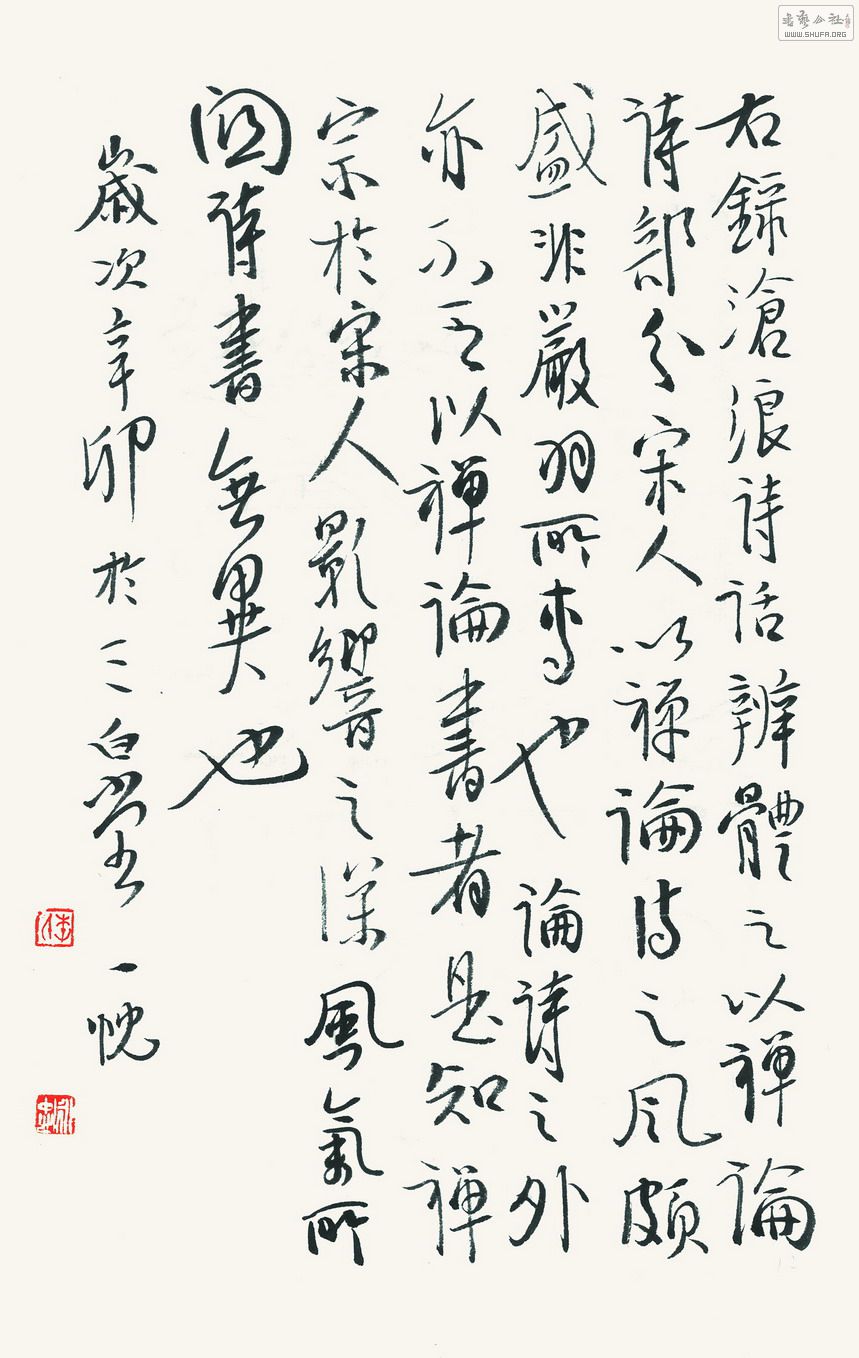 右錄滄浪詩話辨體之以禪論
詩部分宋人以禪論詩之風頗
盛非嚴羽所專也論詩之外
亦不乏以禪論書者是知禪
宗於宋人影響之深風氣所
關詩書無異也
歲次辛卯於三白堂 一悅
書藝公社
WWW.SHUFA.ORG